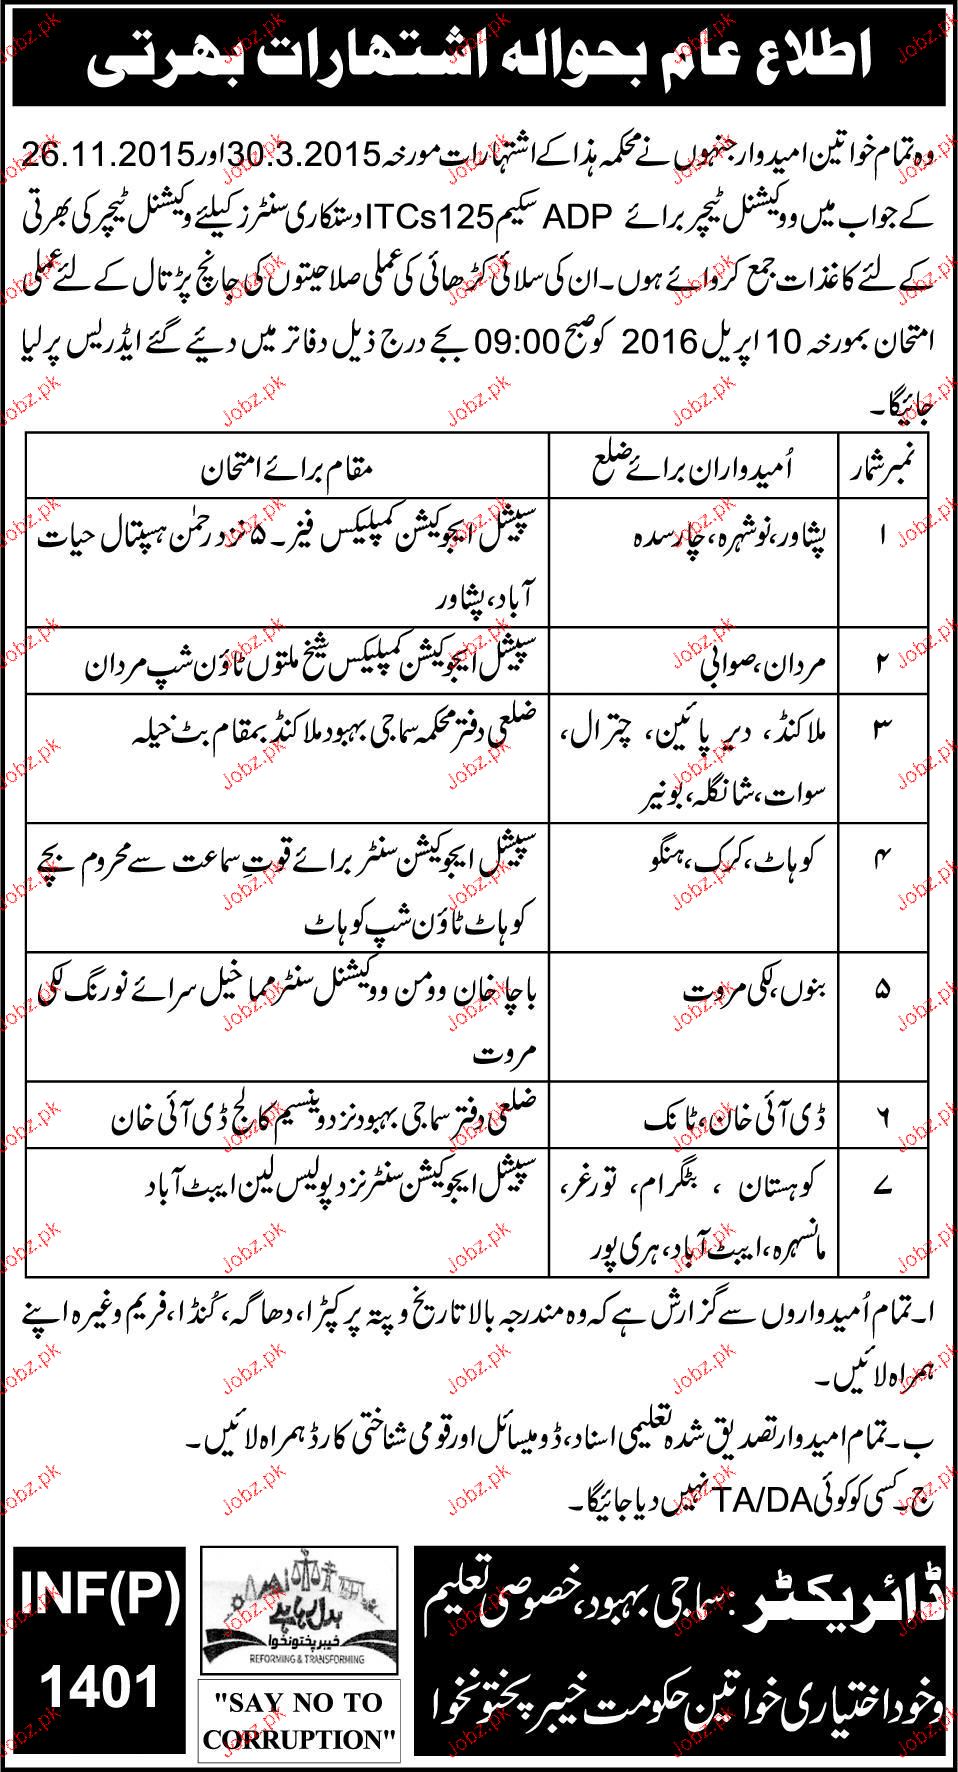 اطلاع عام بحواله اشتهارات بھرتی
وہ تمام خواتین امیدوار جنہوں نے محکمہ ہذا کے اشتہارات مورخہ 30.3.2015 اور 26.11.2015
کے جواب میں ووکیشنل ٹیچر برائے ADP سکیم ITCs125 دستکاری سنٹرز کیلئے وکیشنل ٹیچر کی بھرتی
کے لئے کاغذات جمع کروائے ہوں۔ ان کی سلائی کڑھائی کی عملی صلاحیتوں کی جانچ پڑتال کے لئے عملی
امتحان بمورخہ 10 اپریل 2016 کو صبح 09:00 بجے درج ذیل دفاتر میں دیئے گئے ایڈریس پر لیا
جائیگا۔
نمبر شمار	اُمیدواران برائے ضلع	مقام برائے امتحان
۱	پشاور، نوشہرہ، چارسدہ	سپیشل ایجوکیشن کمپلیکس فیز۔۵ نزد رحمٰن ہسپتال حیات
آباد، پشاور
۲	مردان، صوابی	سپیشل ایجوکیشن کمپلیکس شیخ ملتوں ٹاؤن شپ مردان
۳	ملاکنڈ، دیر پائین، چترال،	ضلعی دفتر محکمہ سماجی بہبود ملاکنڈ بمقام بٹ خیلہ
سوات، شانگلہ، بونیر
۴	کوہاٹ، کرک، ہنگو	سپیشل ایجوکیشن سنٹر برائے قوتِ سماعت سے محروم بچے
کوہاٹ ٹاؤن شپ کوہاٹ
۵	بنوں، لکی مروت	باچا خان وومن ووکیشنل سنٹر مما خیل سرائے نورنگ لکی
مروت
۶	ڈی آئی خان، ٹانک	ضلعی دفتر سماجی بہبود نزد وینسیم کالج ڈی آئی خان
۷	کوہستان ، بٹگرام، تورغر،	سپیشل ایجوکیشن سنٹر نزد پولیس لین ایبٹ آباد
مانسہرہ، ایبٹ آباد، ہری پور
ا۔ تمام اُمیدواروں سے گزارش ہے کہ وہ مندرجہ بالا تاریخ و پتہ پر کپڑا، دھاگہ، کُنڈا، فریم وغیرہ اپنے
ہمراہ لائیں۔
ب۔ تمام امیدوار تصدیق شدہ تعلیمی اسناد، ڈومیسائل اور قومی شناختی کارڈ ہمراہ لائیں۔
ج۔ کسی کو کوئی TA/DA نہیں دیا جائیگا۔
ڈائریکٹر : سماجی بہبود، خصوصی تعلیم
و خود اختیاری خواتین حکومت خیبر پختونخوا
بدل رہا ہے
خیبر پختونخوا
REFORMING & TRANSFORMING
"SAY NO TO
CORRUPTION"
INF(P)
1401
Jobz.pk